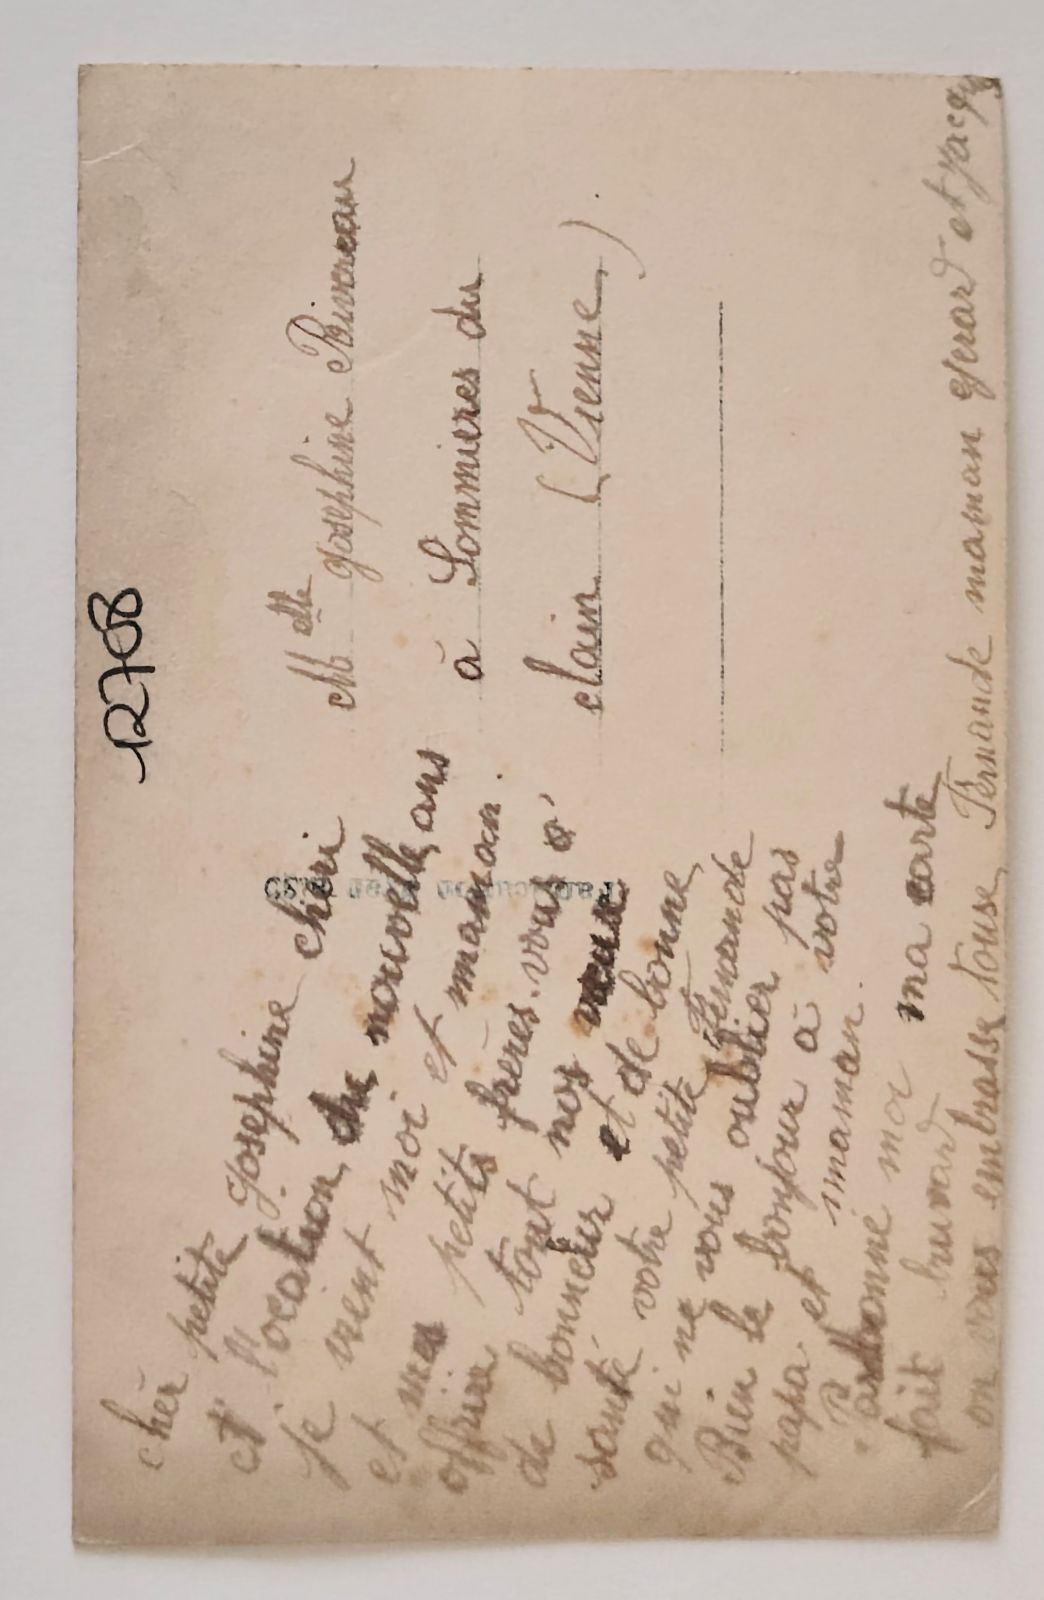 12708
chèr petite Josephine chéri
et l'ocation du nouvelle ans
je vient moi et maman.
et mes petits frères. vous
offrire tout nos veux
de bonneur et de bonne
santé votre petite Fernande
qui ne vous oublier pas
Bien le bonjour à votre
papa et maman.
Pardonné moi ma carte
fait buvard
on vous embrasse touse Fernande maman Gerard et Jacqu
Melle Josephine
à Sommieres du
clain (Vienne)